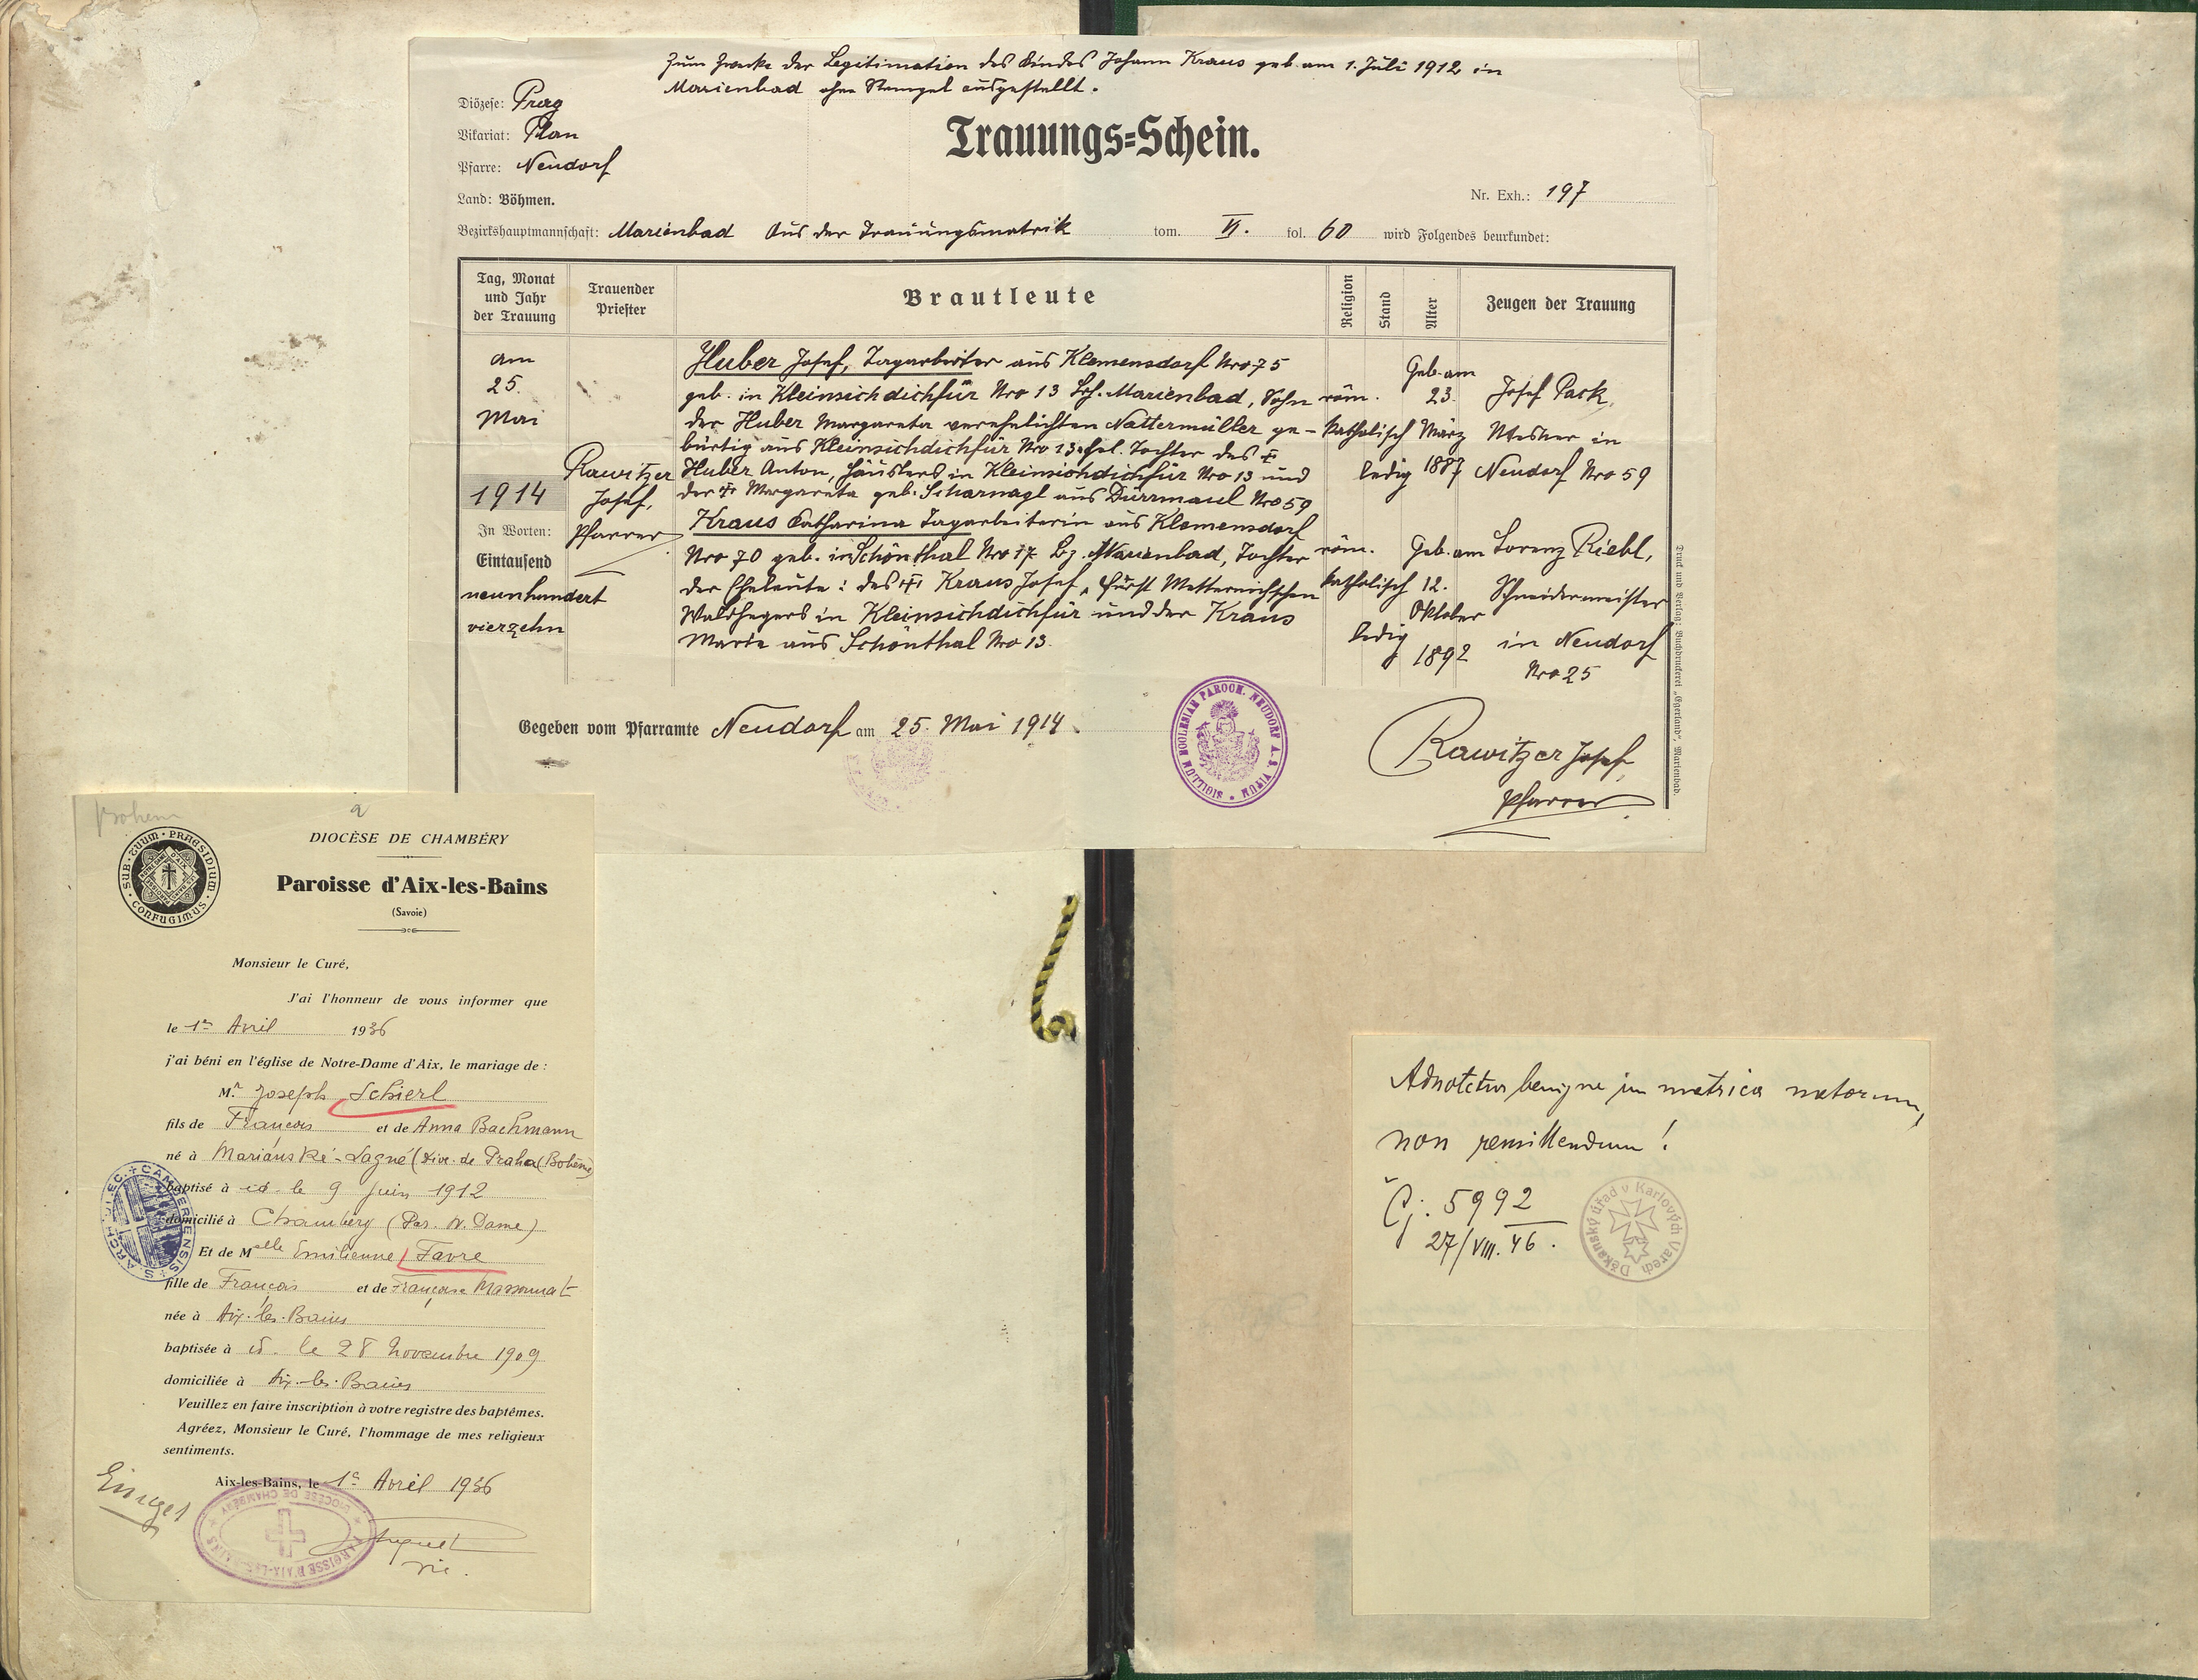 Zum Zwecke der Legitimation des Kindes Johann Kraus geb. am 1. Juli 1912 in
Marienbad ohne Stempel ausgestellt.
Diözese: Prag
Vikariat: Plan
Pfarre: Neudorf
Land: Böhmen.
Trauungs=Schein.
Nr. Exh.: 197
Bezirkshauptmannschaft: Marienbad Aus der Trauungsmatrik tom. VI. fol. 60 wird Folgendes beurkundet:
Tag, Monat
und Jahr
der Trauung
Trauender
Priester
Brautleute
Religion
Stand
Alter
Zeugen der Trauung
am
25.
Mai
1914
In Worten:
Eintausend
neunhundert
vierzehn
Rawitzer
Josef,
Pfarrer
Huber Josef, Tagarbeiter aus Klemensdorf Nro 75
geb. in Kleinsichdichfür Nro 13 Bz. Marienbad, Sohn
der Huber Margareta verehelichten Nattermüller ge-
bürtig aus Kleinsichdichfür Nro 13, ehel. Tochter des †
Huber Anton, Häuslers in Kleinsichdichfür Nro 13 und
der † Margareta geb. Scharnagl aus Dürrmaul Nro 59
Kraus Katharina Tagarbeiterin aus Klemensdorf
Nro 70 geb. in Schönthal Nro 17 Bz. Marienbad, Tochter
der Eheleute: des † Kraus Josef, Fürst Metternichschen
Waldhegers in Kleinsichdichfür und der Kraus
Marie aus Schönthal Nro 13.
röm.
katholisch
ledig
Geb. am
23.
März
1887
Josef Pack,
Mesner in
Neudorf Nro 59
röm.
katholisch
ledig
Geb. am
12.
Oktober
1892
Lorenz Riebl,
Schneidermeister
in Neudorf
Nro 25
Druck und Verlag: Buchdruckerei „Egerland“, Marienbad.
Gegeben vom Pfarramte Neudorf am 25. Mai 1914.
SIGILLUM ECCLESIAE PAROCH. NEUDORF A. S. VITUM
Rawitzer Josef,
Pfarrer
Bohem
SUB · TUUM · PRAESIDIUM · CONFUGIMUS
DIOCÈSE DE CHAMBÉRY
Paroisse d'Aix-les-Bains
(Savoie)
Monsieur le Curé,
J'ai l'honneur de vous informer que
le 1er Avril 1936
j'ai béni en l'église de Notre-Dame d'Aix, le mariage de :
Mr Joseph Schierl
fils de François et de Anna Bachmann
né à Marianské-Lagné (Dioc. de Praha (Bohême)
baptisé à id. le 9 Juin 1912
domicilié à Chambéry (Par. N. Dame)
Et de Melle Emilienne Favre
fille de François et de Françoise Massonnat
née à Aix-les-Bains
baptisée à id. le 28 Novembre 1909
domiciliée à Aix-les-Bains
Veuillez en faire inscription à votre registre des baptêmes.
Agréez, Monsieur le Curé, l'hommage de mes religieux
sentiments.
Aix-les-Bains, le 1er Avril 1936
PAROISSE D'AIX-LES-BAINS DIOCÈSE DE CHAMBÉRY
vic.
Adnotetur benigne in matrica natorum,
non remittendum!
Čj. 5992
27/VIII. 46.
Děkanský úřad v Karlových Varech